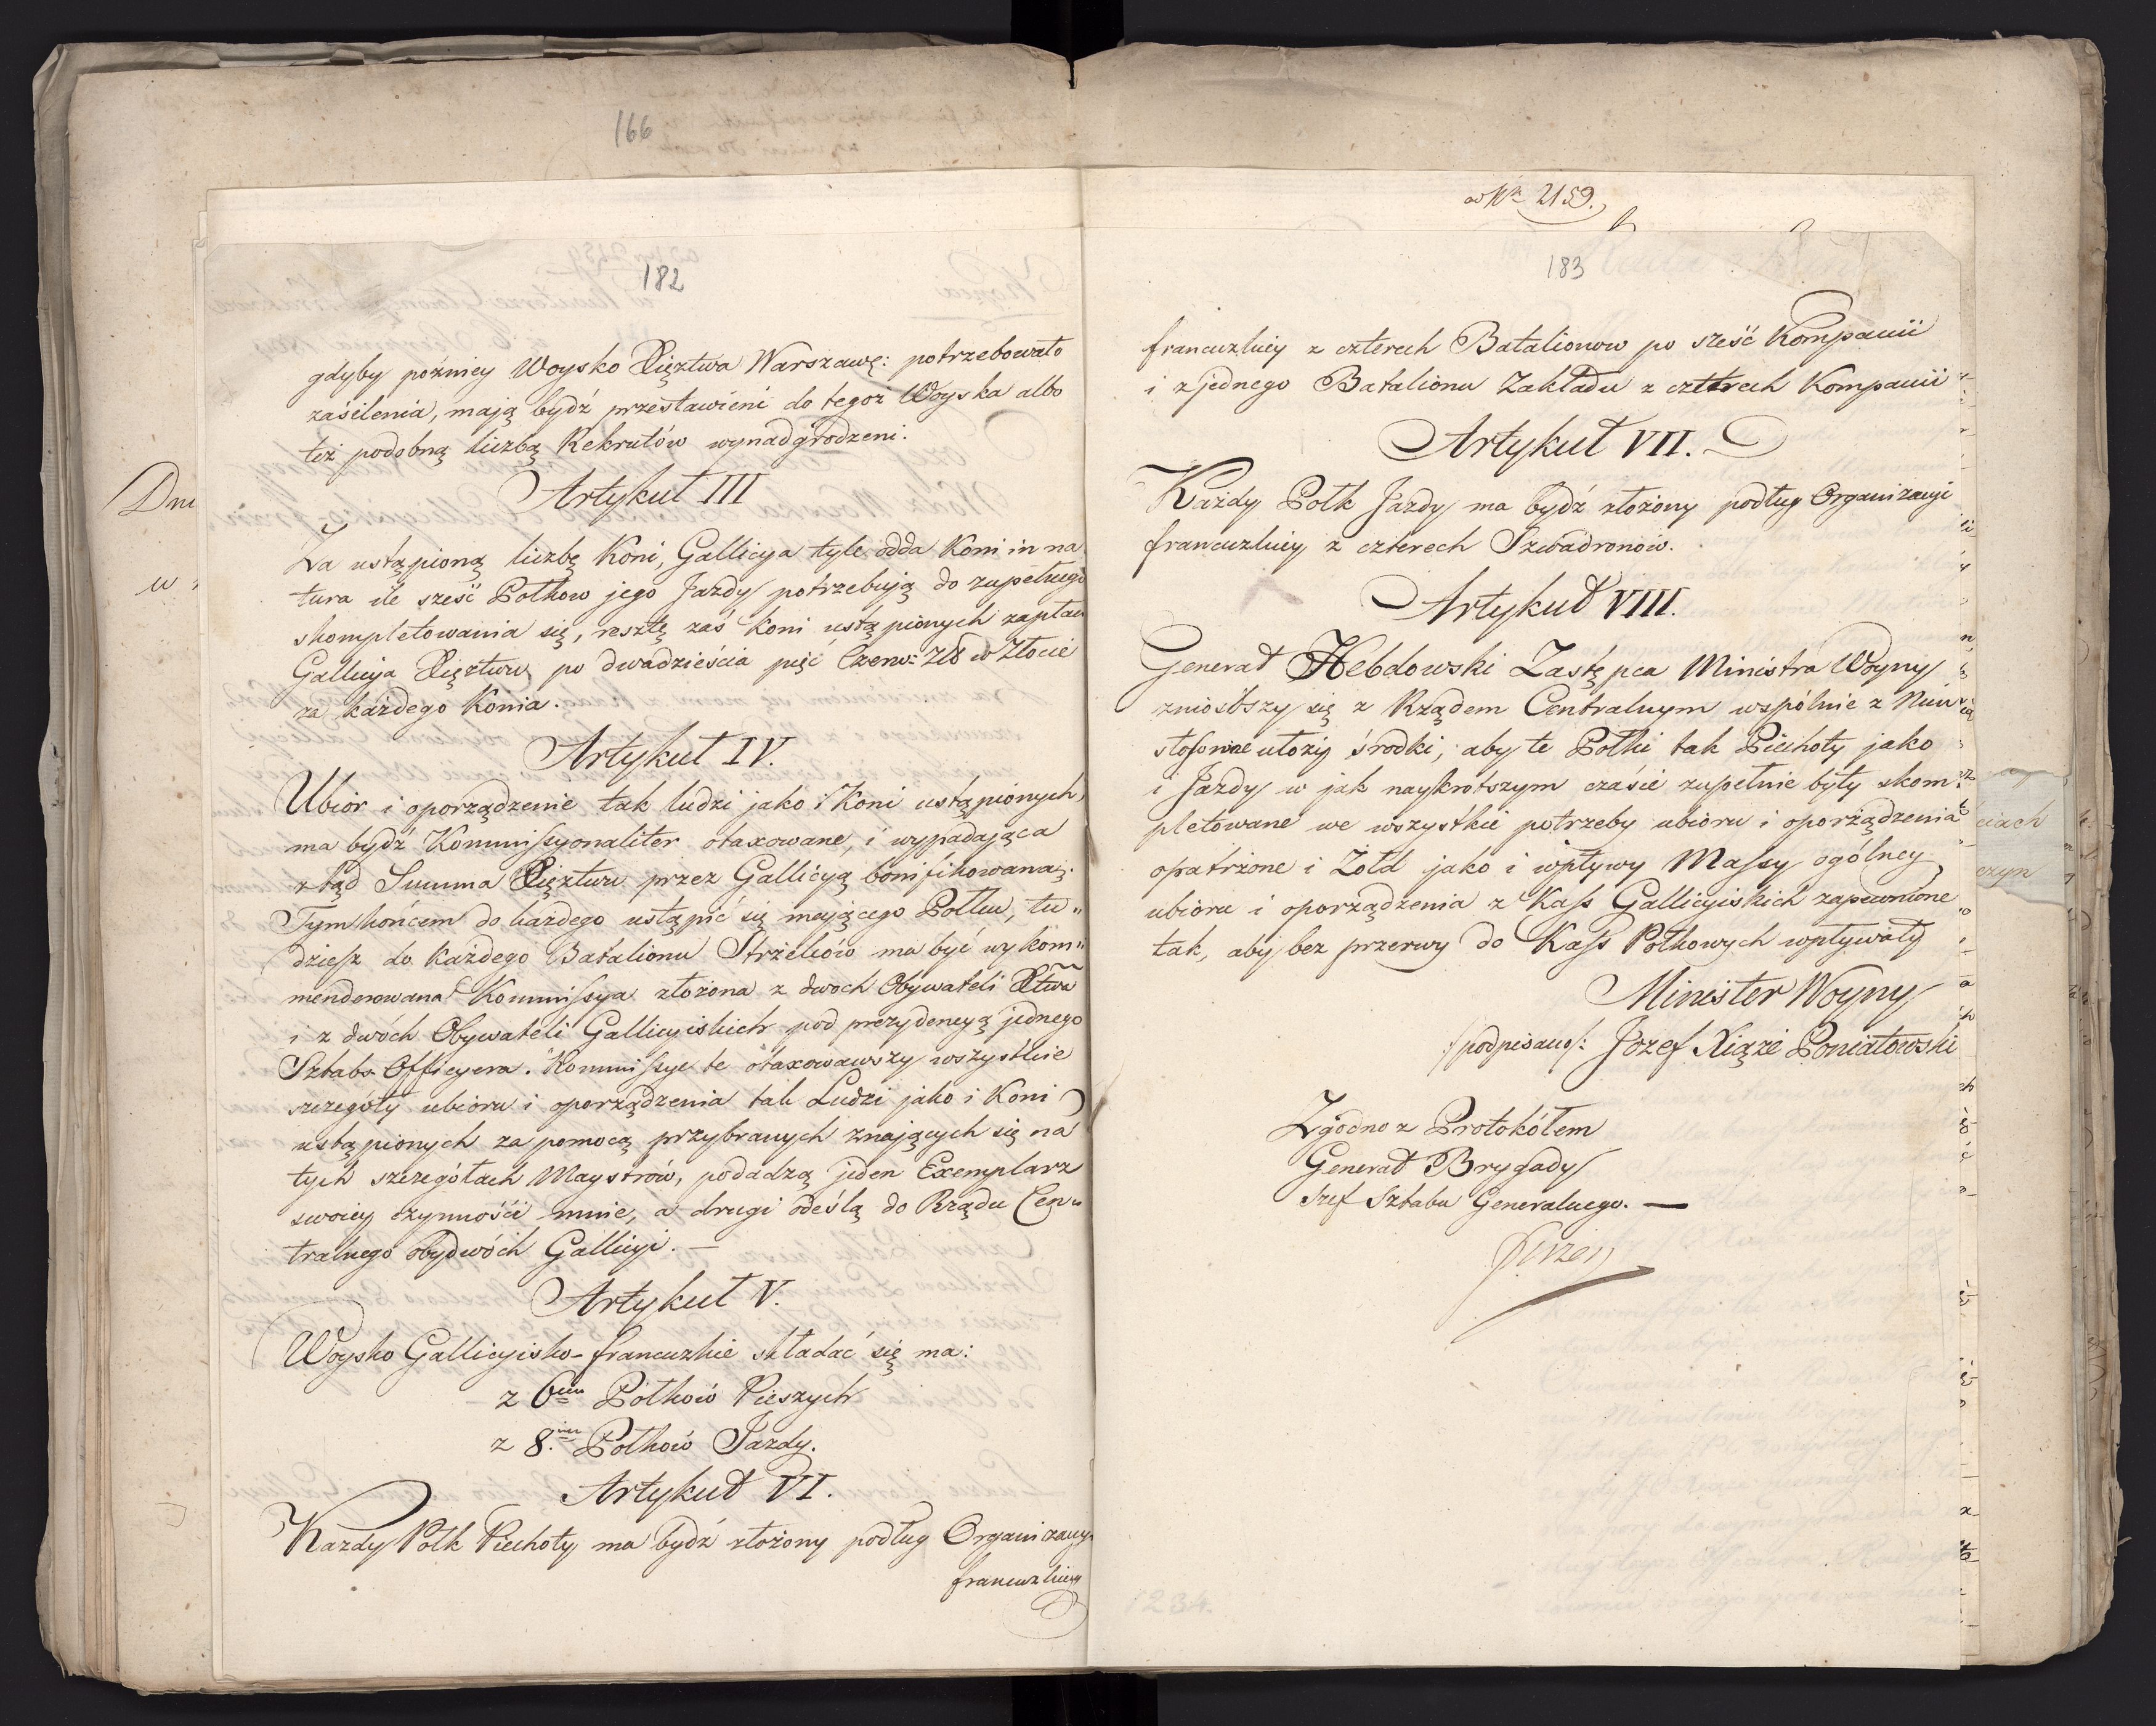 166
182
gdyby poźniey Woysko Xięztwa Warszawś: potrzebowało
zaśilenia, mają bydź przestawieni do tegoż Woyska albo
też podobną liczbą Rekrutów wynadgrodzeni.
Artykuł III
Za ustąpioną liczbę Koni, Gallicya tyle odda Koni in na
tura ile sześć Połkow jego Jazdy potrzebują do zupełnego
skompletowania się, resztę zaś Koni ustąpionych zapłaci
Gallicya Xięztwu po dwadzieścia pięć Czerw: Zł: w Złocie
za każdego Konia.
Artykuł IV.
Ubior i oporządzenie tak ludzi jako i Koni ustąpionych,
ma bydź Kommissyonaliter otaxowane, i wypadająca
ztąd Summa Xięztwu przez Gallicyą bonifikowana.
Tym końcem do każdego ustąpić się mającego Połku, tu„
dziesz do Każdego Batalionu Strzelców ma być wykom„
menderowana Kommissya złożona z dwoch Obywateli Xtwa
i z dwóch Obywateli Gallicyiskich pod prezydencyą jednego
Sztabs Officyera. Kommissye te otaxowawszy wszystkie
szczegóły ubioru i oporządzenia tak Ludzi jako i Koni
ustąpionych za pomocą przybranych znających się na
tych szczegółach Maystrów, podadzą jeden Exemplarz
swoiey czynności mnie, a drugi odeślą do Rządu Cen„
tralnego obydwóch Gallicyi. —
Artykuł V.
Woysko Gallicyisko-francuzkie składać się ma:
z 6ciu Połków Pieszych
z 8.miu Połków Jazdy.
Artykuł VI.
Każdy Połk Piechoty ma bydź złożony podług Organizacyi
francuzkiey
ad Nr 2159.
183
francuzkiey z czterech Batalionow po sześć Kompanii
i z jednego Batalionu Zakładu z czterech Kompanii
Artykuł VII.
Każdy Połk Jazdy ma bydź złożony podług Organizacyi
francuzkiey z czterech Szwadronów.
Artykuł VIII.
Generał Hebdowski Zastępca Ministra Woyny
zniosłszy się z Rządem Centralnym wspólnie z Nim
stosowne ułoży środki, aby te Połki tak Piechoty jako
i Jazdy w jak naykrotszym czasie zupełnie były skom„
pletowane we wszystkie potrzeby ubioru i oporządzenia
opatrzone i Żołd jako i wpływy Massy ogólney
ubioru i oporządzenia z Kass Gallicyiskich zapewnione
tak, aby bez przerwy do Kass Połkowych wpływały
Minister Woyny
/:podpisano/: Jozef Xiąże Poniatowski
Zgodno z Protokółem
Generał Brygady
Szef Sztabu Generalnego. —